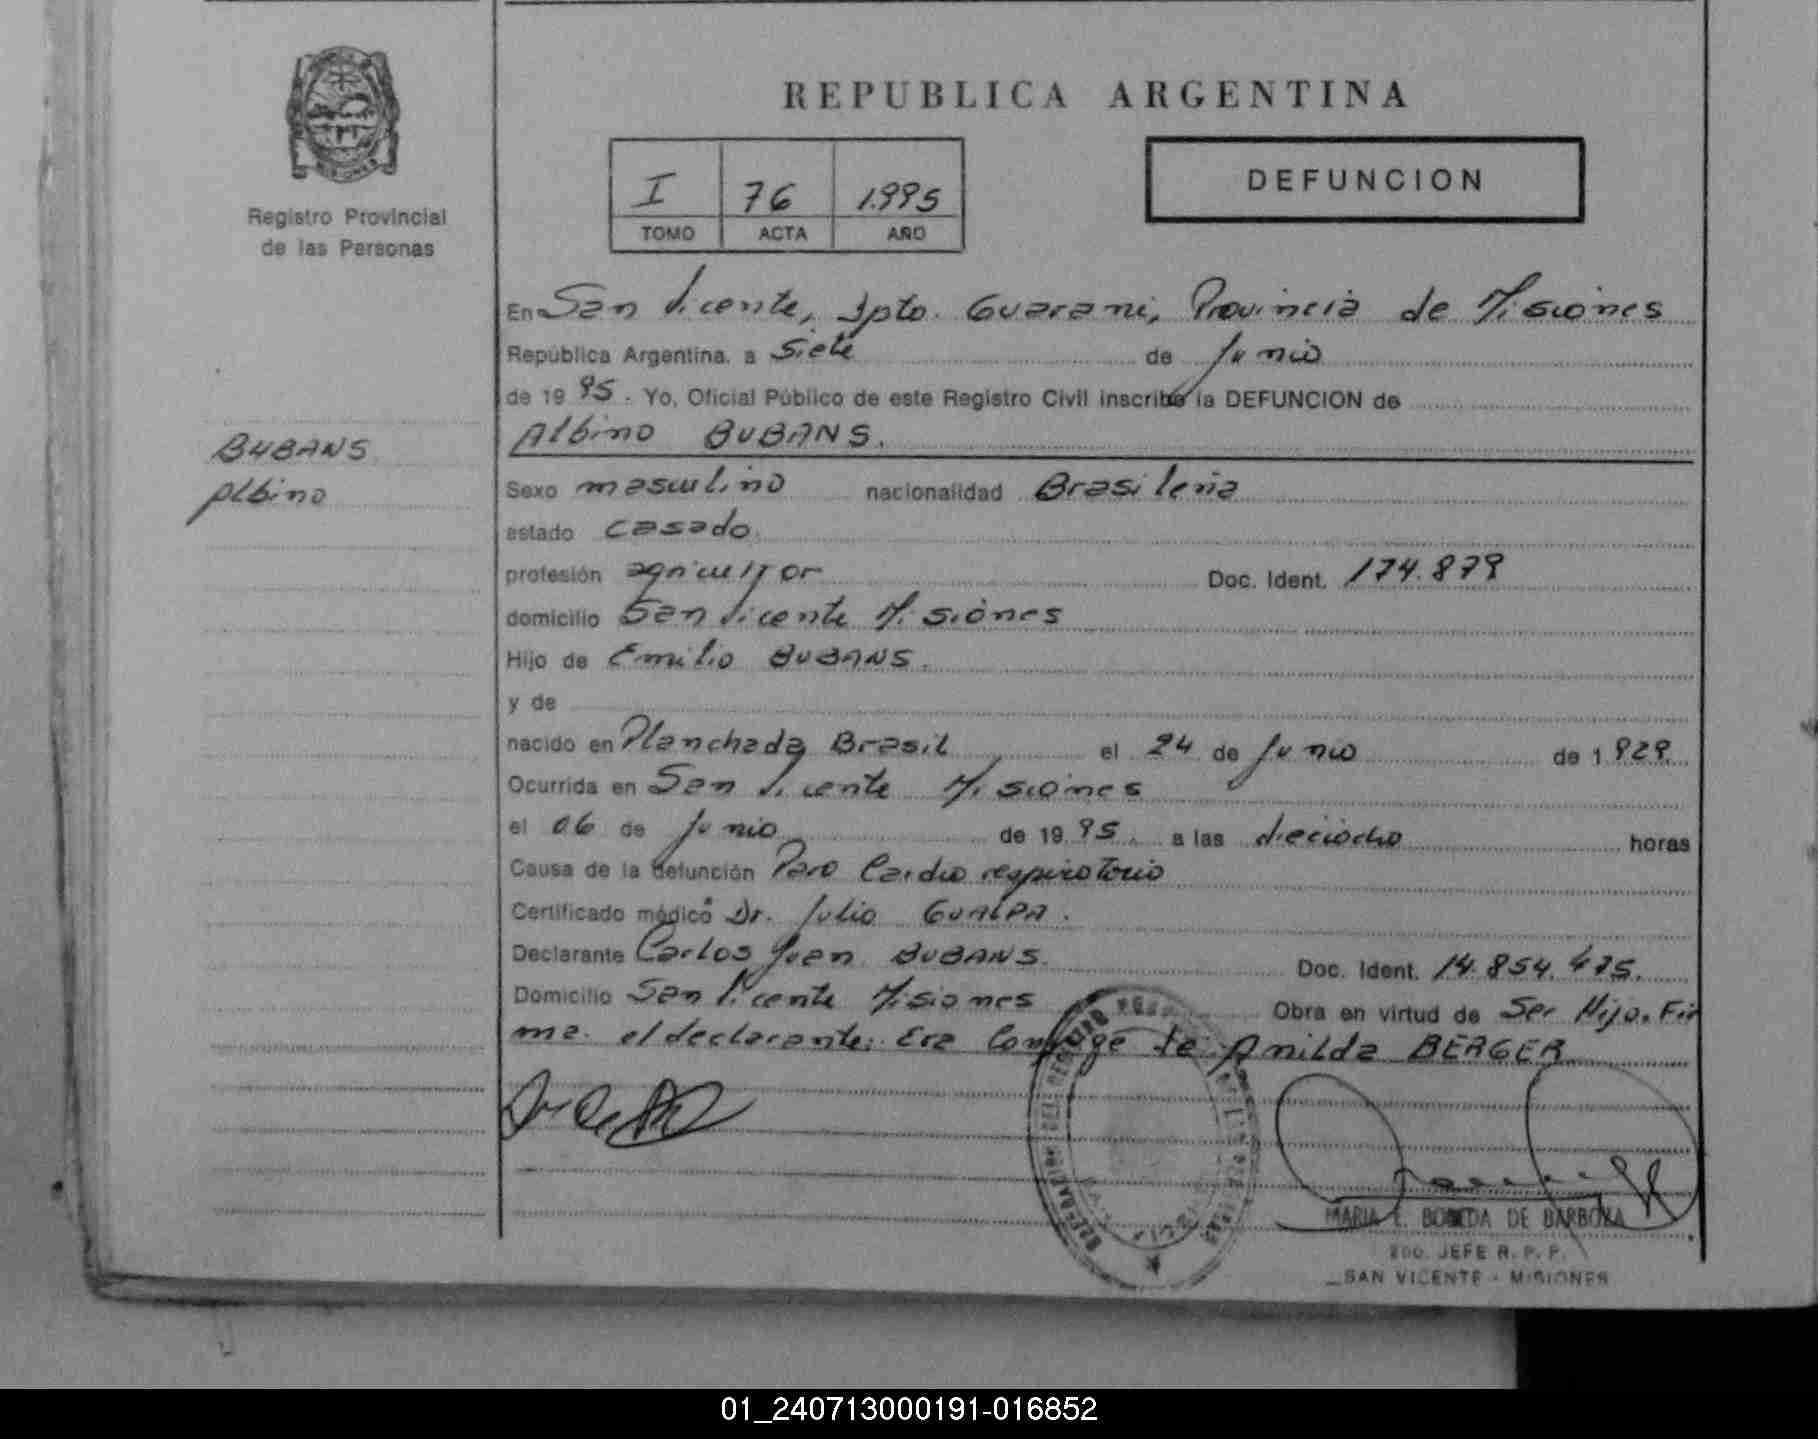 REPUBLICA ARGENTINA
MISIONES
Registro Provincial
de las Personas
I 76 1.995
TOMO ACTA AÑO
DEFUNCION
En San Vicente, Dpto. Guarani, Provincia de Misiones
República Argentina. a Siete de Junio
de 19 95. Yo, Oficial Público de este Registro Civil inscribo la DEFUNCION de
Albino BUBANS.
BUBANS
Albino
Sexo masculino nacionalidad Brasileña
estado casado.
profesión agricultor Doc. Ident. 174.879
domicilio San Vicente Misiones
Hijo de Emilio BUBANS.
y de
nacido en Planchada Brasil el 24 de Junio de 1 929.
Ocurrida en San Vicente Misiones
el 06 de Junio de 19 95. a las dieciocho horas
Causa de la defunción Paro Cardio respiratorio
Certificado médico Dr. Julio GUALPA.
Declarante Carlos Juan BUBANS. Doc. Ident. 14.854.475.
Domicilio San Vicente Misiones Obra en virtud de Ser Hijo. Fir
ma. el declarante: Era Conyuge de Anilda BERGER
MARIA BOVEDA DE BARBOZA
JEFE R. P. P.
SAN VICENTE - MISIONES
01_240713000191-016852